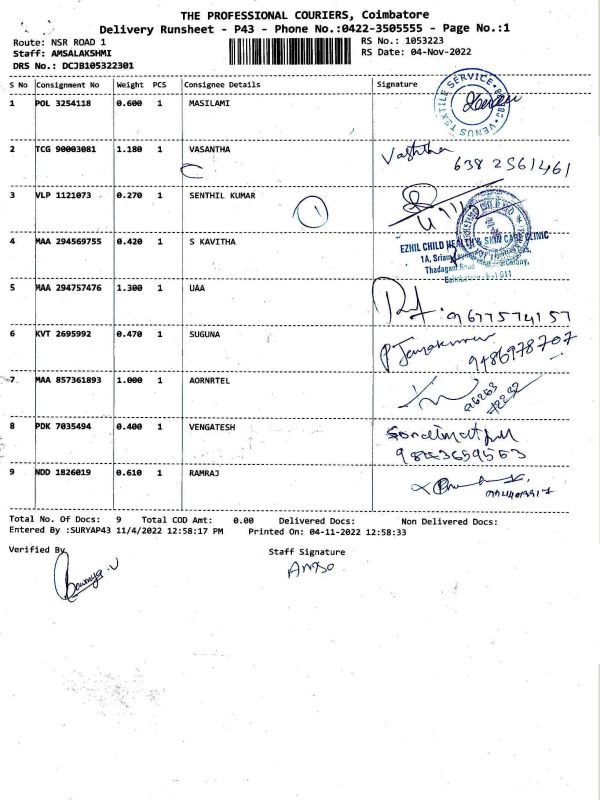 THE PROFESSIONAL COURIERS, Coimbatore
Delivery Runsheet - P43 - Phone No.:0422-3505555 - Page No.:1
Route: NSR ROAD 1 RS No.: 1053223
Staff: AMSALAKSHMI RS Date: 04-Nov-2022
DRS No.: DCJB105322301
S No Consignment No Weight PCS Consignee Details Signature
1 POL 3254118 0.600 1 MASILAMI
VENUS TEXTILE SERVICE
2 TCG 90003081 1.180 1 VASANTHA Vasntha
638 2561461
3 VLP 1121073 0.270 1 SENTHIL KUMAR 1
4 MAA 294569755 0.420 1 S KAVITHA
EZHIL CHILD HEALTH & SKIN CARE CLINIC
5 MAA 294757476 1.300 1 UAA
9677574157
6 KVT 2695992 0.470 1 SUGUNA
9486978707
7 MAA 857361893 1.000 1 AORNRTEL
8 PDK 7035494 0.400 1 VENGATESH
9 NDD 1826019 0.610 1 RAMRAJ
Total No. Of Docs: 9 Total COD Amt: 0.00 Delivered Docs: Non Delivered Docs:
Entered By :SURYAP43 11/4/2022 12:58:17 PM Printed On: 04-11-2022 12:58:33
Verified By Staff Signature
Sowmya.V